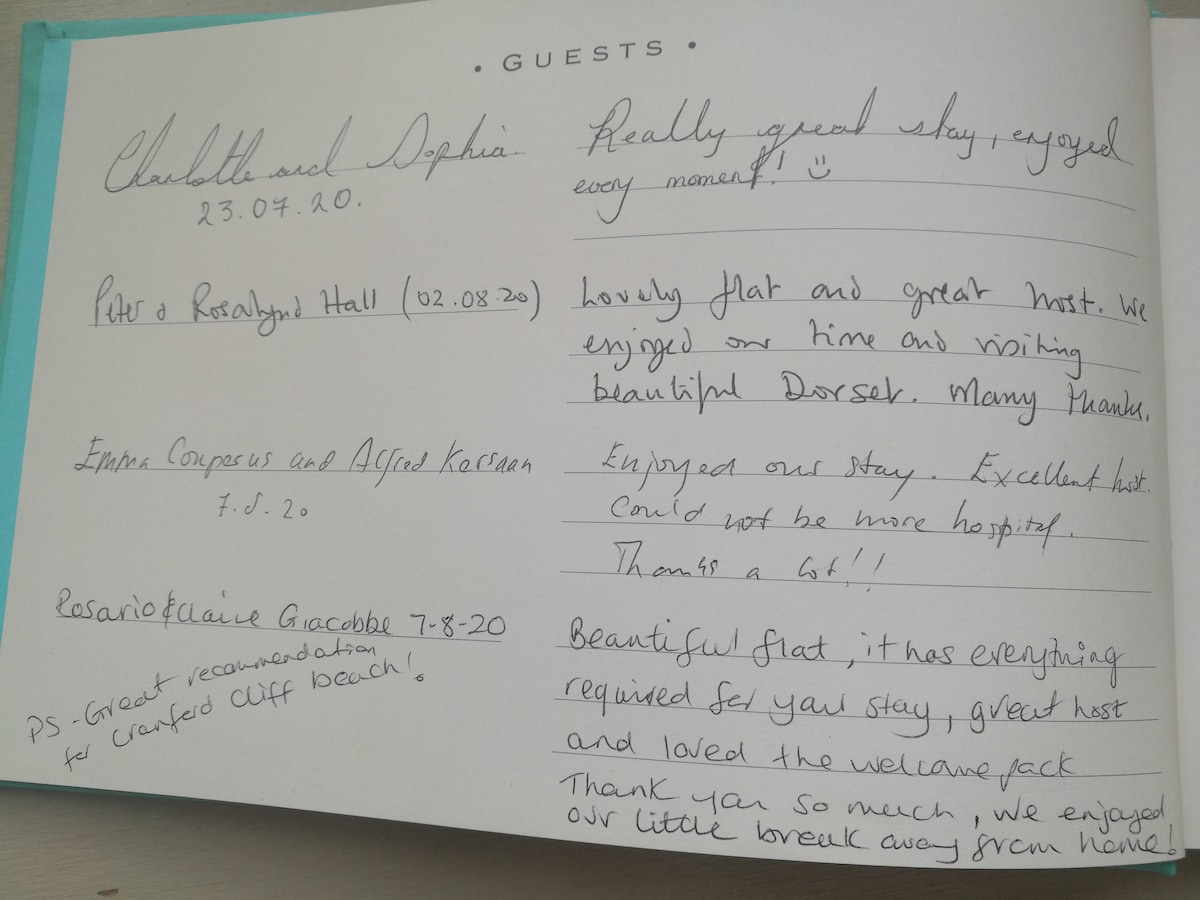 • GUESTS •
Charlotte and Sophia.
23.07.20.
Really great stay, enjoyed
every moment! :)
Peter & Rosalynd Hall (02.08.20)
Lovely flat and great host. We
enjoyed our time and visiting
beautiful Dorset. Many thanks.
Emma and Alfred
7.8.20
Enjoyed our stay. Excellent host.
Could not be more hospital.
Thanks a lot!!
Rosario & Claire Giacobbe 7-8-20
PS - Great recommendation
for Cranford Cliff beach!
Beautiful flat, it has everything
required for your stay, great host
and loved the welcome pack
Thank you so much, we enjoyed
our little break away from home!